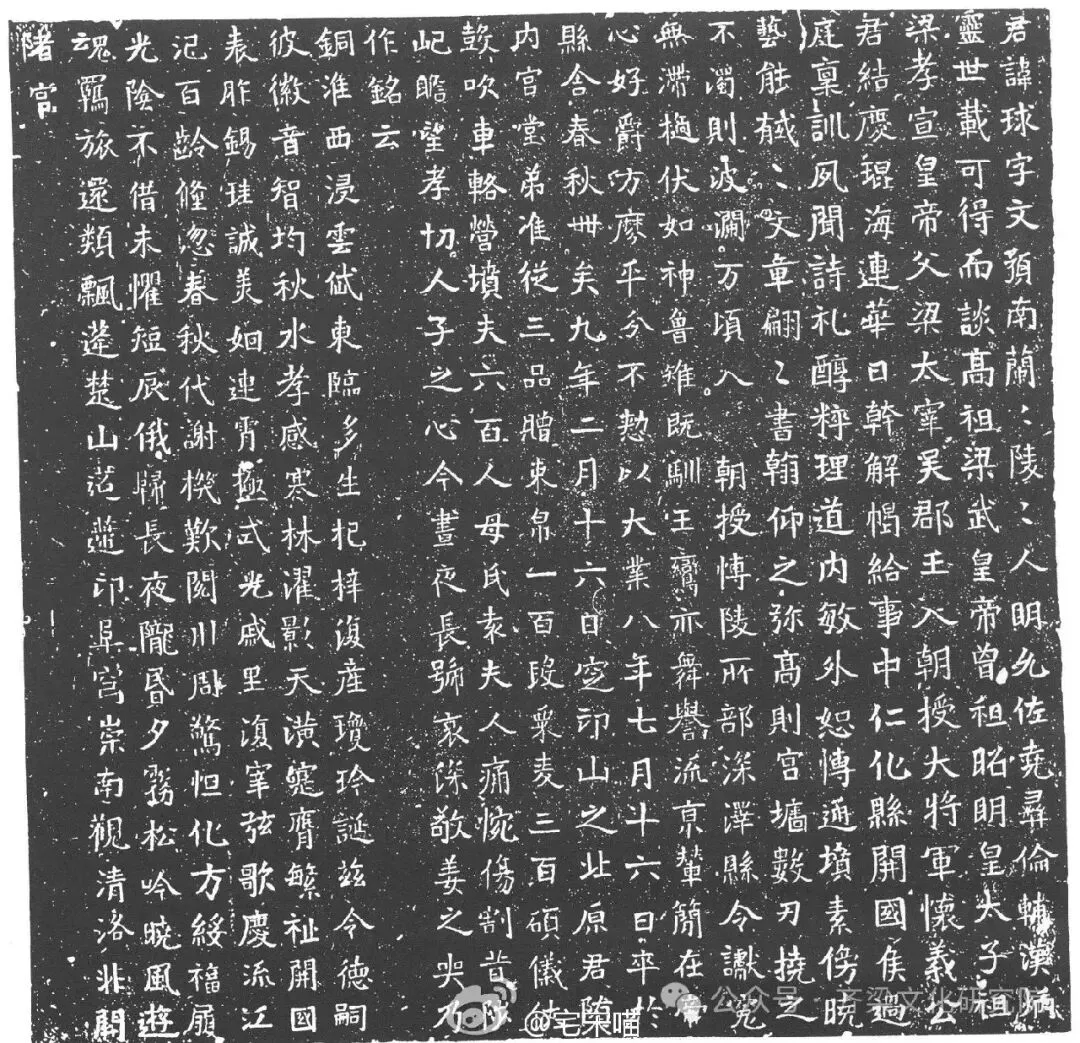 君諱球字文預南蘭〻陵〻人明允佐堯彝倫輔漢炳
靈世載可得而談高祖梁武皇帝曾祖昭明皇太子祖
梁孝宣皇帝父梁太宰吴郡王入朝授大將軍懷義公
君結慶琨海連華日幹解褐給事中仁化縣開國侯過
庭稟訓夙聞詩礼醇粹理道内敏外恕愽通墳素傍曉
藝能棫〻文章翩〻書翰仰之弥髙則宫墻數刃撓之
不濁則波瀾万頃入朝授愽陵所部深澤縣令讞寃
無滯擿伏如神魯雉既馴王鸞亦舞譽流京輦簡在帝
心好爵方縻平分不憖以大業八年七月廿六日卒於
縣舍春秋卅矣九年二月十六日窆卬山之北原君隨
内宫堂弟准從三品贈束帛一百段粟麦三百碩儀仗
鼓吹車輅營墳夫六百人母氏袁夫人痛惋傷割昔陟
屺瞻望孝切人子之心今晝夜長號哀深敬姜之哭乃
作銘云
銅淮西浸雲岱東臨多生杞梓復産瓊玲誕兹令德嗣
彼徽音智均秋水孝感寒林濯影天潢寔膺繁祉開國
表胙錫珪誠美姻連霄極式光戚里復宰弦歌慶流江
汜百齡倏忽春秋代謝機歎閲川周驚怛化方綏福履
光陰不借未懼短辰俄歸長夜隴昬夕霧松吟曉風遊
魂羇旅還類飄蓬楚山茫䕬卬阜穹崇南觀清洛非關
陼宫
公众号·齐梁文化研究院
@宅梁喵